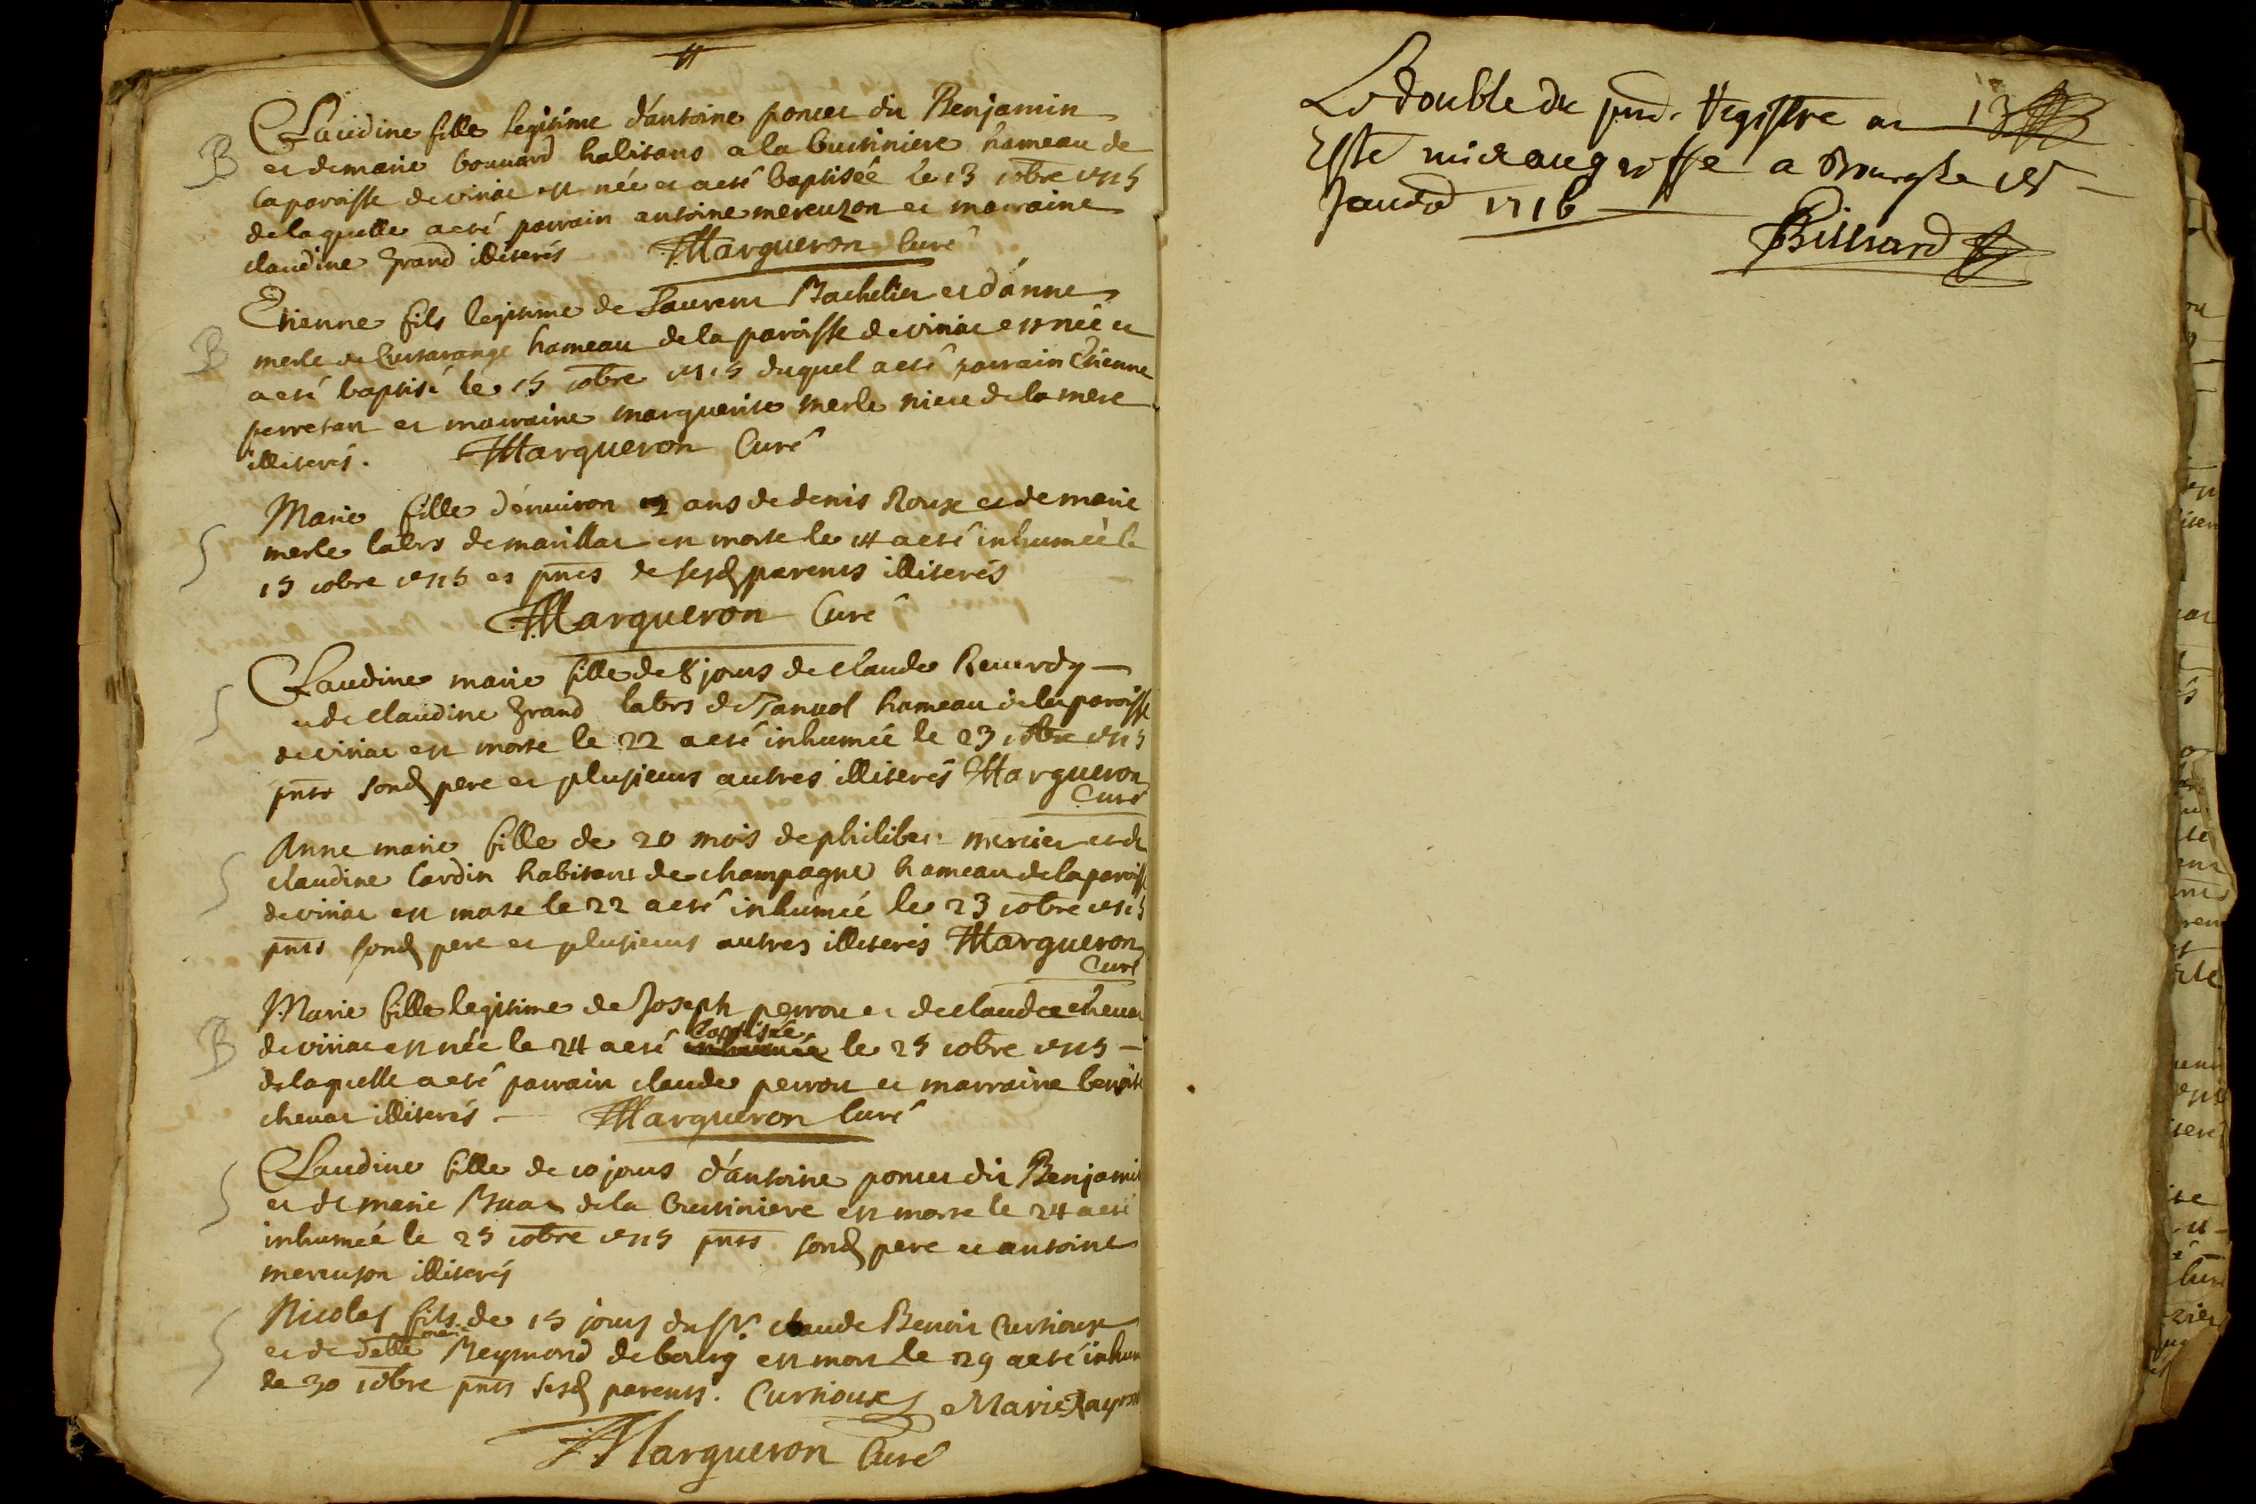 Claudine fille legitime d'antoine poncet dit Benjamin
B
et de marie bouuard habitans a la buitiniere hameau de
la paroisse de viriat est née et a eté baptisée le 13 xobre 1715
de laquelle a eté parrain antoine mereuzon et marraine
claudine grand illiterés Margueron Curé
Etienne fils legitime de Laurent Bachelier et d'anne
B
merle de hameau de la paroisse de viriat est née et
a eté baptisé le 15 xobre 1715 duquel a eté parrain Etienne
perretan et marraine marguerite merle niece de la mere
illiterés. Margueron Curé
Marie fille d'enuiron ans de denis Roux et de marie
S
merle labrs de marillac est morte le 14 a eté inhumée le
15 xobre 1715 et pnts de sesd parents illiterés
Margueron Curé
Claudine marie fille de 8 jours de claude Reuerdy
S
et de claudine grand labrs de Tanuol hameau de la paroisse
de viriat est morte le 22 a eté inhumée le 23 xobre 1715
pnts sond pere et plusieurs autres illiterés Margueron
Curé
Anne marie fille de 20 mois de philibert mercier et de
S
claudine Cardin habitans de champagne hameau de la paroisse
de viriat est morte le 22 a eté inhumée le 23 xobre 1715
pnts sond pere et plusieurs autres illiterés Margueron
Curé
Marie fille legitime de Joseph perrot et de claudee
B
de viriat est née le 24 a eté baptisée le 25 xobre 1715
de laquelle a eté parrain claude perrot et marraine benoite
cheuat illiterés Margueron Curé
Claudine fille de 10 jours d'antoine poncet dit Benjamin
S
et de marie de la buitiniere est morte le 24 a eté
inhumée le 25 xobre 1715 pnts sond pere et antoine
mereuson illiterés
Nicolas fils de 15 jours du Sr. claude Benoit Curtioux
S
et de delle marie Reymond de bourg est mort le 29 a eté inhumé
le 30 xobre pnts sesd parents. Curtioux Marie Raymon
Margueron Curé
Le double du pnt. Registre a
13
Esté mis au greffe a Bourg le
Januier 1716